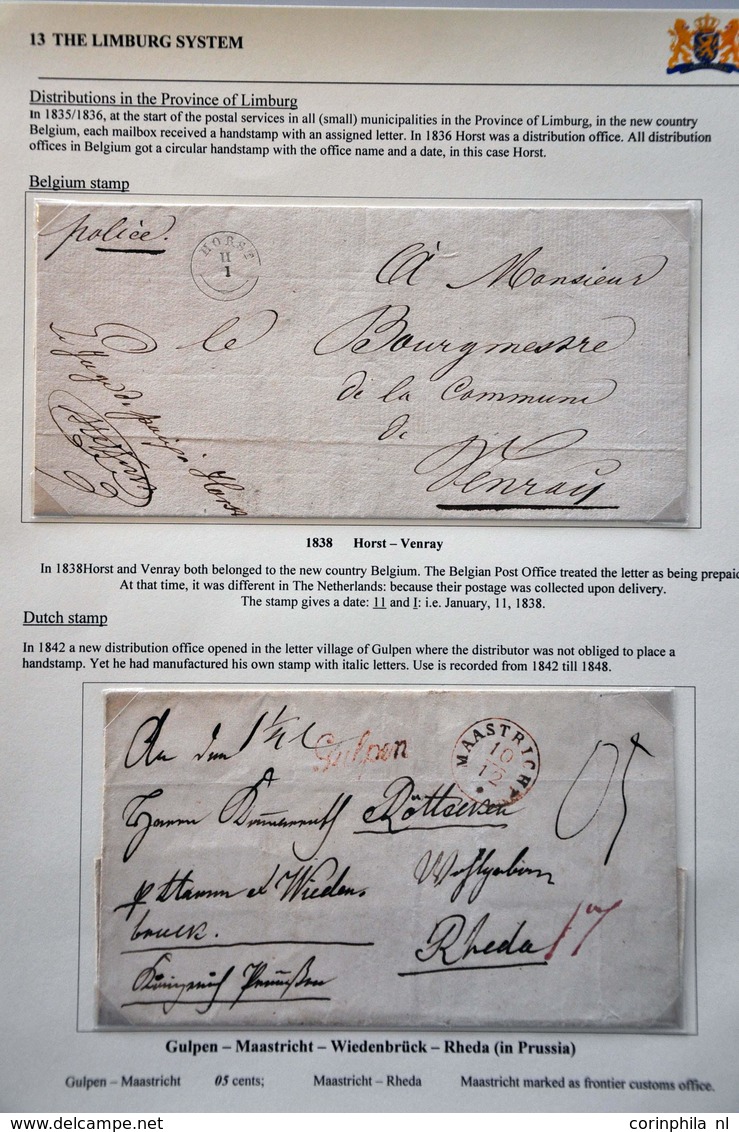 13 THE LIMBURG SYSTEM
Distributions in the Province of Limburg
In 1835/1836, at the start of the postal services in all (small) municipalities in the Province of Limburg, in the new country
Belgium, each mailbox received a handstamp with an assigned letter. In 1836 Horst was a distribution office. All distribution
offices in Belgium got a circular handstamp with the office name and a date, in this case Horst.
Belgium stamp
police.
HORST
II
1
A Monsieur
le Bourgmestre
de la Commune
de
Venray
Le Juge de paix Horst
1838 Horst – Venray
In 1838Horst and Venray both belonged to the new country Belgium. The Belgian Post Office treated the letter as being prepaid
At that time, it was different in The Netherlands: because their postage was collected upon delivery.
The stamp gives a date: 11 and I: i.e. January, 11, 1838.
Dutch stamp
In 1842 a new distribution office opened in the letter village of Gulpen where the distributor was not obliged to place a
handstamp. Yet he had manufactured his own stamp with italic letters. Use is recorded from 1842 till 1848.
An den
Gulpen
MAASTRICHT
10
12
05
Herrn
Wohlgeboren
Wieden-
bruck.
Rheda 17
Königreich Preußen
Gulpen – Maastricht – Wiedenbrück – Rheda (in Prussia)
Gulpen – Maastricht 05 cents; Maastricht – Rheda Maastricht marked as frontier customs office.
corinphila nl